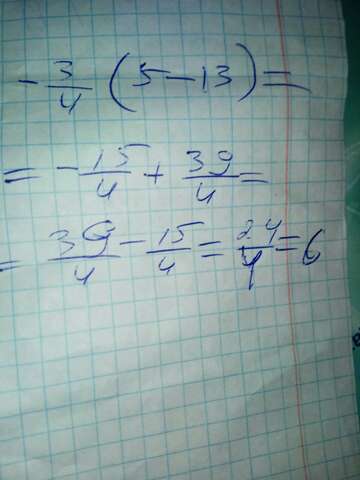 -3/4 (5-13)=
= -15/4 + 39/4 =
= 39/4 - 15/4 = 24/4 = 6